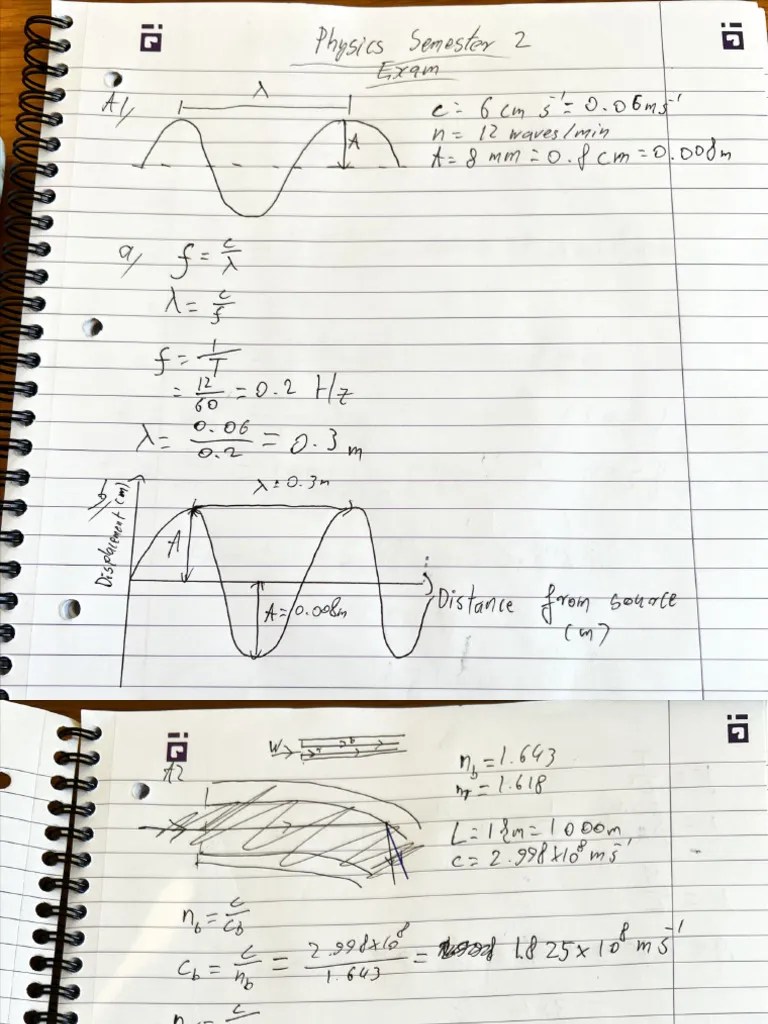 Physics Semester 2
Exam
A1/
λ
A
c = 6 cm s⁻¹ = 0.06 m s⁻¹
n = 12 waves/min
A = 8 mm = 0.8 cm = 0.008 m
a/ f = c/λ
λ = c/f
f = 1/T
= 12/60 = 0.2 Hz
λ = 0.06/0.2 = 0.3 m
b/
λ = 0.3m
Displacement (m)
A
A = 0.008m
Distance from source
(m)
A2
W
b
r
n_b = 1.643
n_r = 1.618
L = 1 km = 1000m
c = 2.998×10⁸ m s⁻¹
n_b = c/c_b
c_b = c/n_b = 2.998×10⁸/1.643 = 1.825 × 10⁸ m s⁻¹